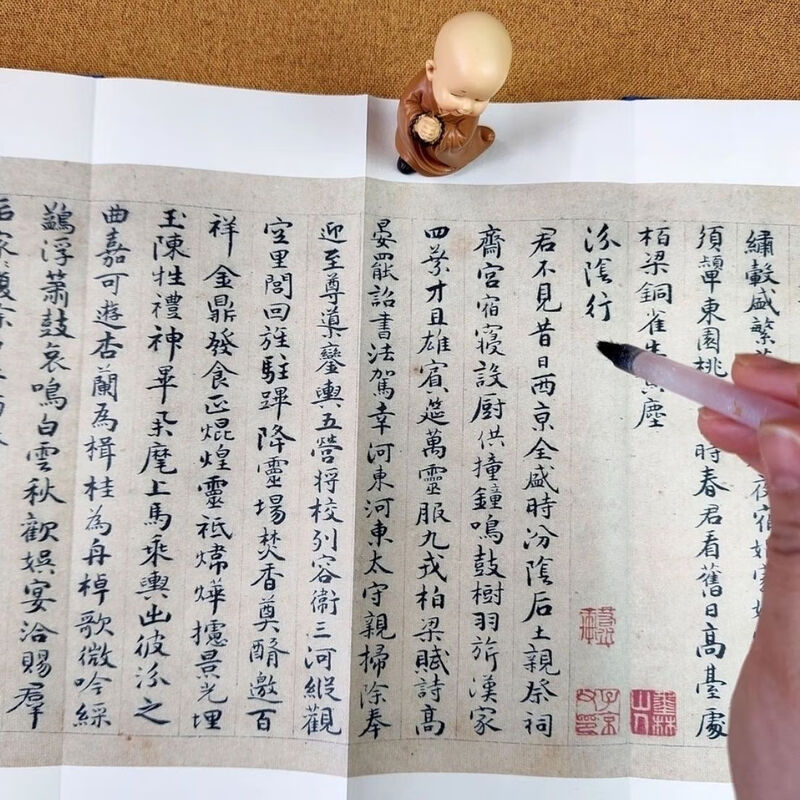 繡轂盛繁
須攀東園桃時春君看舊日高臺處
柏梁銅雀生黃塵
汾陰行
君不見昔日西京全盛時汾陰后土親祭祠
齋宮宿寢設廚供撞鐘鳴鼓樹羽旂漢家
四葉才且雄賓筵萬靈服九戎柏梁賦詩高
晏罷詔書法駕幸河東河東太守親掃除奉
迎至尊導鑾輿五營將校列容衛三河縱觀
空里閭回旌駐蹕降靈場焚香奠醑邀百
祥金鼎發食正焜煌靈祇煒燁攄景光埋
玉陳牲禮神畢舉麾上馬乘輿出彼汾之
曲嘉可遊杏蘭為楫桂為舟棹歌微吟綵
鷁浮簫鼓哀鳴白雲秋歡娛宴洽賜群